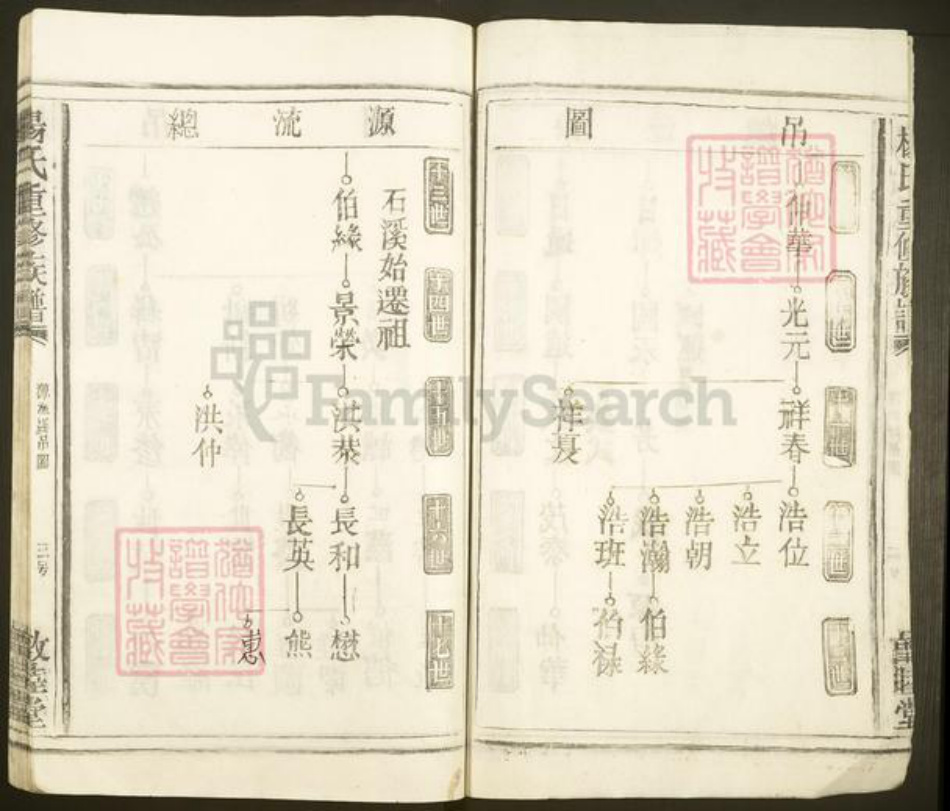 楊氏重修族譜
敦睦堂
吊
圖
仲華
光元
祥春
祥夏
浩位
浩立
浩朝
浩瀚
浩班
伯緣
伯祿
源
流
總
十三世
十四世
十五世
十六世
十七世
石溪始遷祖
伯緣
景榮
洪恭
洪仲
長和
長英
懋
熊
惠
楊氏重修族譜
源流總吊圖
敦睦堂
猶他家
譜學會
收藏
猶他家
譜學會
收藏
FamilySearch